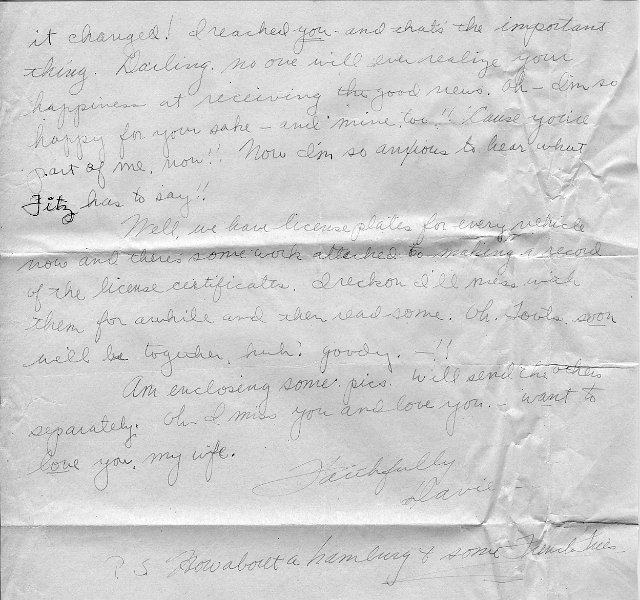 it changed! I reached you - and that's the important
thing. Darling, no one will ever realize your
happiness at receiving the good news. Oh - I'm so
happy for your sake - and mine, too!! 'Cause you're
part of me, now!! Now I'm so anxious to hear what
Fitz has to say!!
Well, we have license plates for every vehicle
now and there's some work attached to making a record
of the license certificates. I reckon I'll mess with
them for awhile and then read some. Oh, soon
we'll be together, huh? goody. - !!
Am enclosing some pics. Will send the others
separately. Oh - I miss you and love you. - want to
love you, my wife.
Faithfully
Davie -
P.S. How about a hamburg & some French Fries.